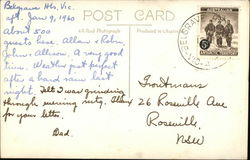 Belgrave Hts, Vic.
apt. Jan 9, 1960
POST CARD
about 500
guests here. Allan & Robin,
John & Allison. A very good
time. Weather just perfect
after a hard rain last
night. Tell I was grinding
through evening
for your letter.
Dad.
Troutmans
26 Roseville Ave
Roseville
NSW
A Real Photo
Produced in
AUSTRALIA
BELGRAVE